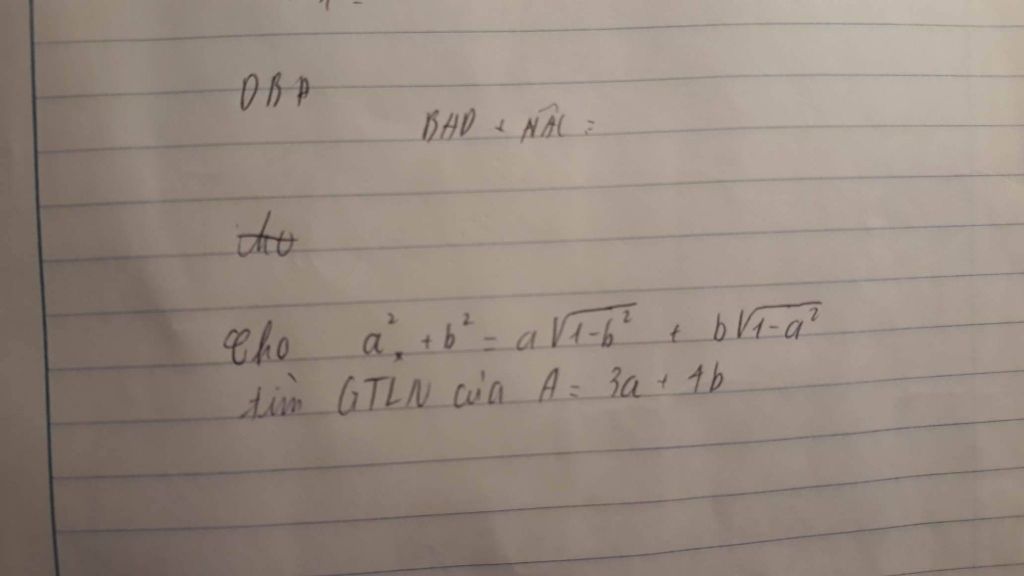 DBA
BHD + NAC =
cho
Cho a² + b² = a√1-b² + b√1-a²
tìm GTLN của A = 3a + 4b